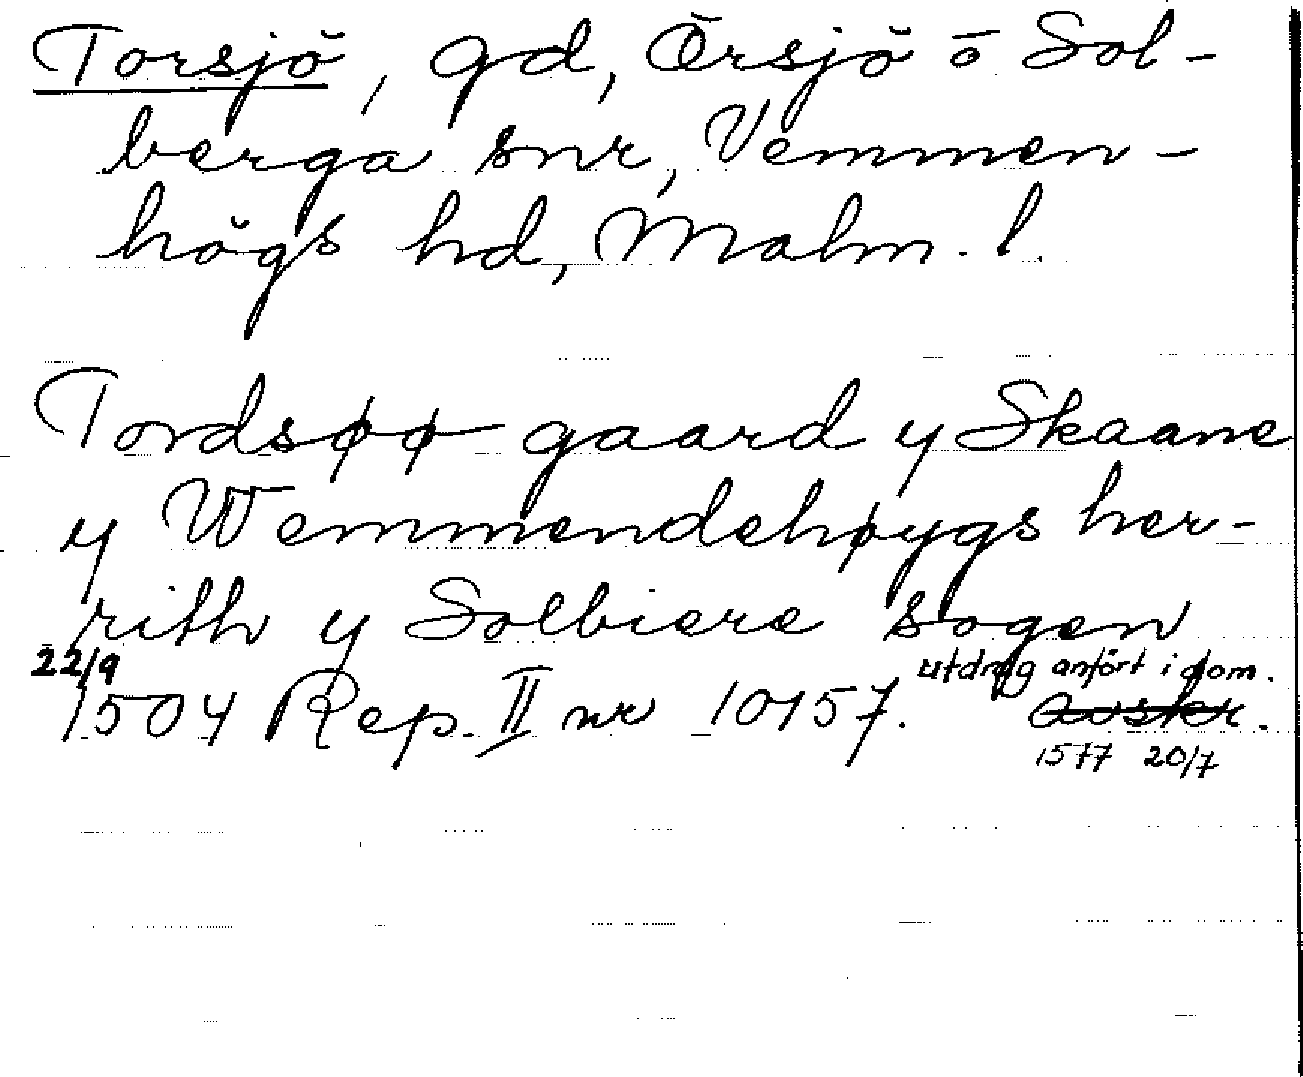 Torsjö, gd, Örsjö o Sol-
berga snr, Vemmen-
högs hd, Malm. l.
Tordsøø gaard y Skaane
y Wemmendehøygs her-
rith y Solbiere sogen
22/9
1504 Rep. II nr 10157. utdrag anfört i dom.
Avskr.
1577 20/7